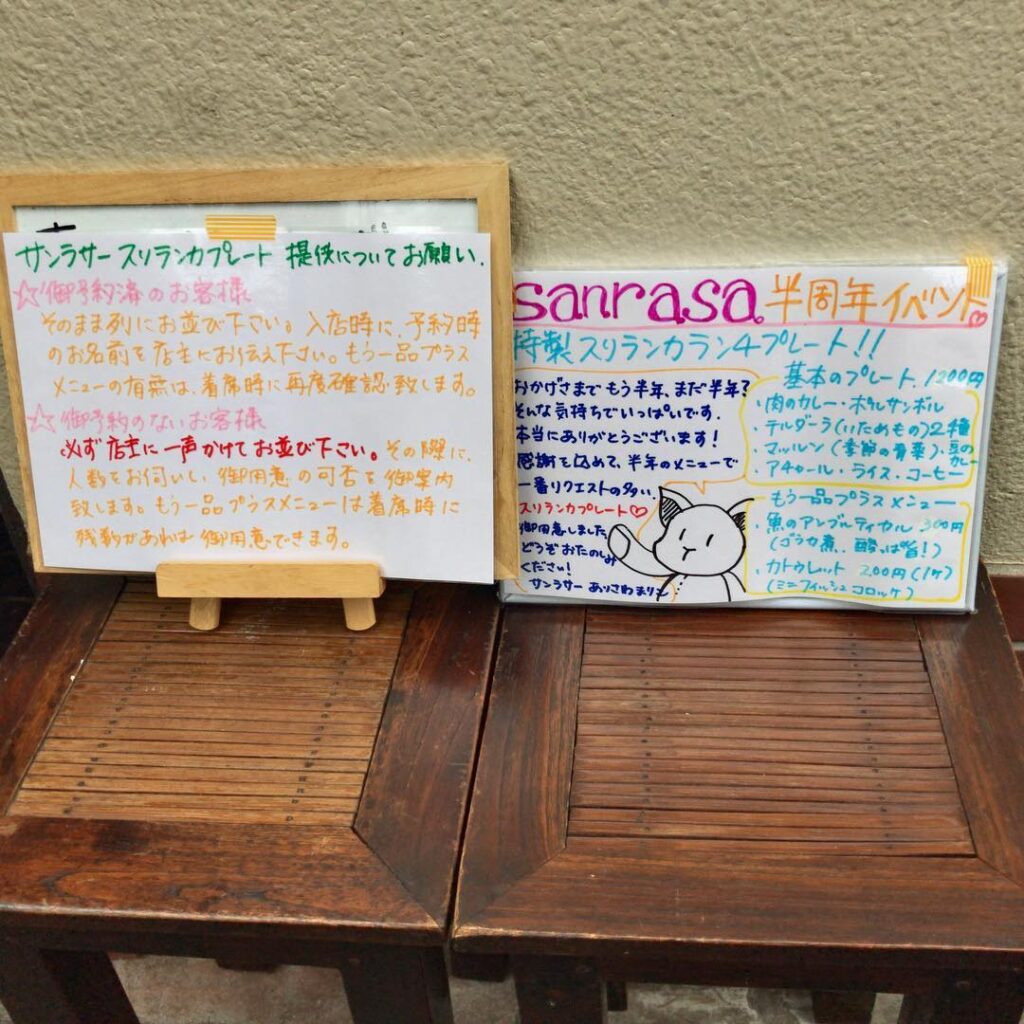 サンラサー スリランカプレート 提供についてお願い.
☆御予約済のお客様
そのまま列にお並び下さい。入店時に、予約時
のお名前を店主にお伝え下さい。もう一品プラス
メニューの有無は、着席時に再度確認致します。
☆御予約のないお客様
必ず店主に一声かけてお並び下さい。その際に、
人数をお伺いし、御用意の可否を御案内
致します。もう一品プラスメニューは着席時に
残数があれば御用意できます。
sanrasa 半周年イベント♡
特製スリランカランチプレート!!
おかげさまでもう半年、まだ半年?
そんな気持ちでいっぱいです.
本当にありがとうございます!
感謝を込めて、半年のメニューで
一番リクエストの多い、
スリランカプレート♡
御用意しました
どうぞおたのしみ
ください!
サンラサー ありさわまりこ
基本のプレート. 1200円
・肉のカレー・ポルサンボル
・テルダーラ(いためもの)2種
・マッルン(季節の青菜)・豆のカレー
・アチャール・ライス・コーヒー
もう一品プラスメニュー
・魚のアンブルティヤル 300円
(ゴラカ煮、酸っぱ旨!)
・カトゥレット 200円(1ケ)
(ミニフィッシュコロッケ)